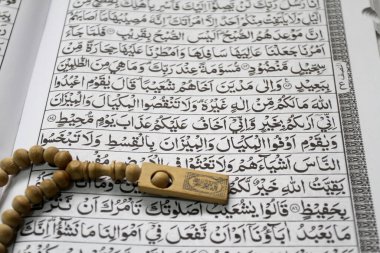 الَّيْلِ وَلَا يَلْتَفِتْ مِنْكُمْ اَحَدٌ اِلَّا امْرَاَتَكَ اِنَّهٗ مُصِيْبُهَا مَآ اَصَابَهُمْ
اِنَّ مَوْعِدَهُمُ الصُّبْحُ اَلَيْسَ الصُّبْحُ بِقَرِيْبٍ فَلَمَّا جَآءَ
اَمْرُنَا جَعَلْنَا عَالِيَهَا سَافِلَهَا وَاَمْطَرْنَا عَلَيْهَا حِجَارَةً مِّنْ
سِجِّيْلٍ مَّنْضُوْدٍ مُّسَوَّمَةً عِنْدَ رَبِّكَ وَمَا هِيَ مِنَ الظّٰلِمِيْنَ
بِبَعِيْدٍ وَاِلٰى مَدْيَنَ اَخَاهُمْ شُعَيْبًا قَالَ يٰقَوْمِ اعْبُدُوا
اللّٰهَ مَا لَكُمْ مِّنْ اِلٰهٍ غَيْرُهٗ وَلَا تَنْقُصُوا الْمِكْيَالَ وَالْمِيْزَانَ
اِنِّيْٓ اَرٰىكُمْ بِخَيْرٍ وَّاِنِّيْٓ اَخَافُ عَلَيْكُمْ عَذَابَ يَوْمٍ مُّحِيْطٍ
وَيٰقَوْمِ اَوْفُوا الْمِكْيَالَ وَالْمِيْزَانَ بِالْقِسْطِ وَلَا تَبْخَسُوا
النَّاسَ اَشْيَآءَهُمْ وَلَا تَعْثَوْا فِي
بَقِيَّتُ اللّٰهِ خَيْرٌ لَّكُمْ
بِحَفِيْظٍ قَالُوْا يٰشُعَيْبُ اَصَلٰوتُكَ تَاْمُرُكَ اَنْ نَّتْرُكَ
مَا يَعْبُدُ اٰبَآؤُنَآ اَوْ اَنْ نَّفْعَلَ فِيْٓ اَمْوَالِنَا مَا نَشٰٓؤُا اِنَّكَ